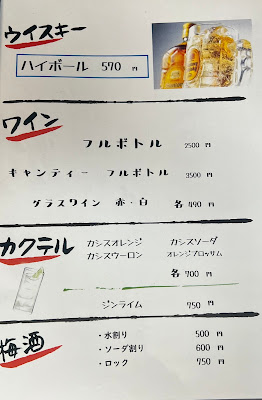 ウイスキー
ハイボール 570 円
ワイン
フルボトル 2500 円
キャンティー フルボトル 3500 円
グラスワイン 赤・白 各490 円
カクテル
カシスオレンジ カシスソーダ
カシスウーロン オレンジブロッサム
各700 円
ジンライム 750 円
梅酒
・水割り 500 円
・ソーダ割り 600 円
・ロック 750 円